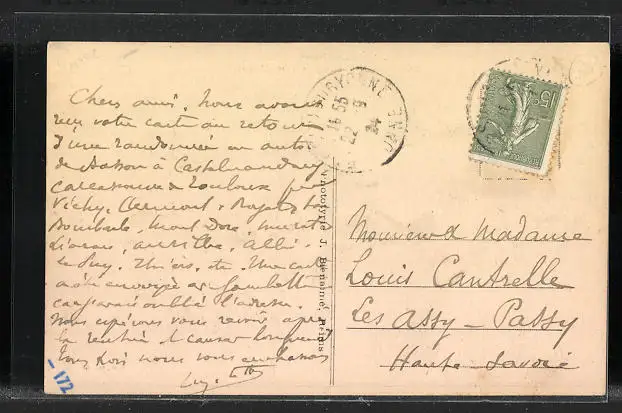 Chers amis, nous avons
reçu votre carte au retour
d'une randonnée en auto
de à Castelnaudary
Carcassonne & Toulouse par
Vichy, Clermont, Royat, La
Bourboule, Mont Dore, murat
aurillac, Albi
Le Puy, Thiers, etc. Une carte
a été envoyée Gambetta
car j'avais oublié l'adresse.
Nous espérons vous revoir après
la rentrée & causer longuement
Tous trois nous vous embrassons
Monsieur & Madame
Louis Cantrelle
Les Assy - Passy
Haute Savoie
Phototypie J. Bienaimé, Reims
15c
16 55
22 - 9
24
- 172